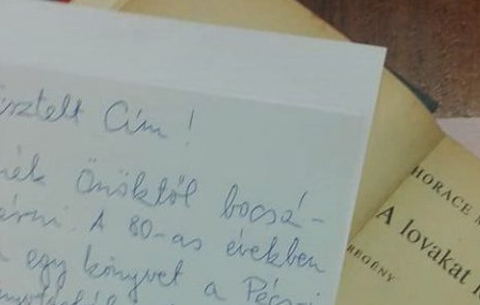 isztelt Cím!
nék Önöktől bocsá-
érni. A 80-as években
egy könyvet a Pécsi
HORACE M
A lovakat l
REGÉNY